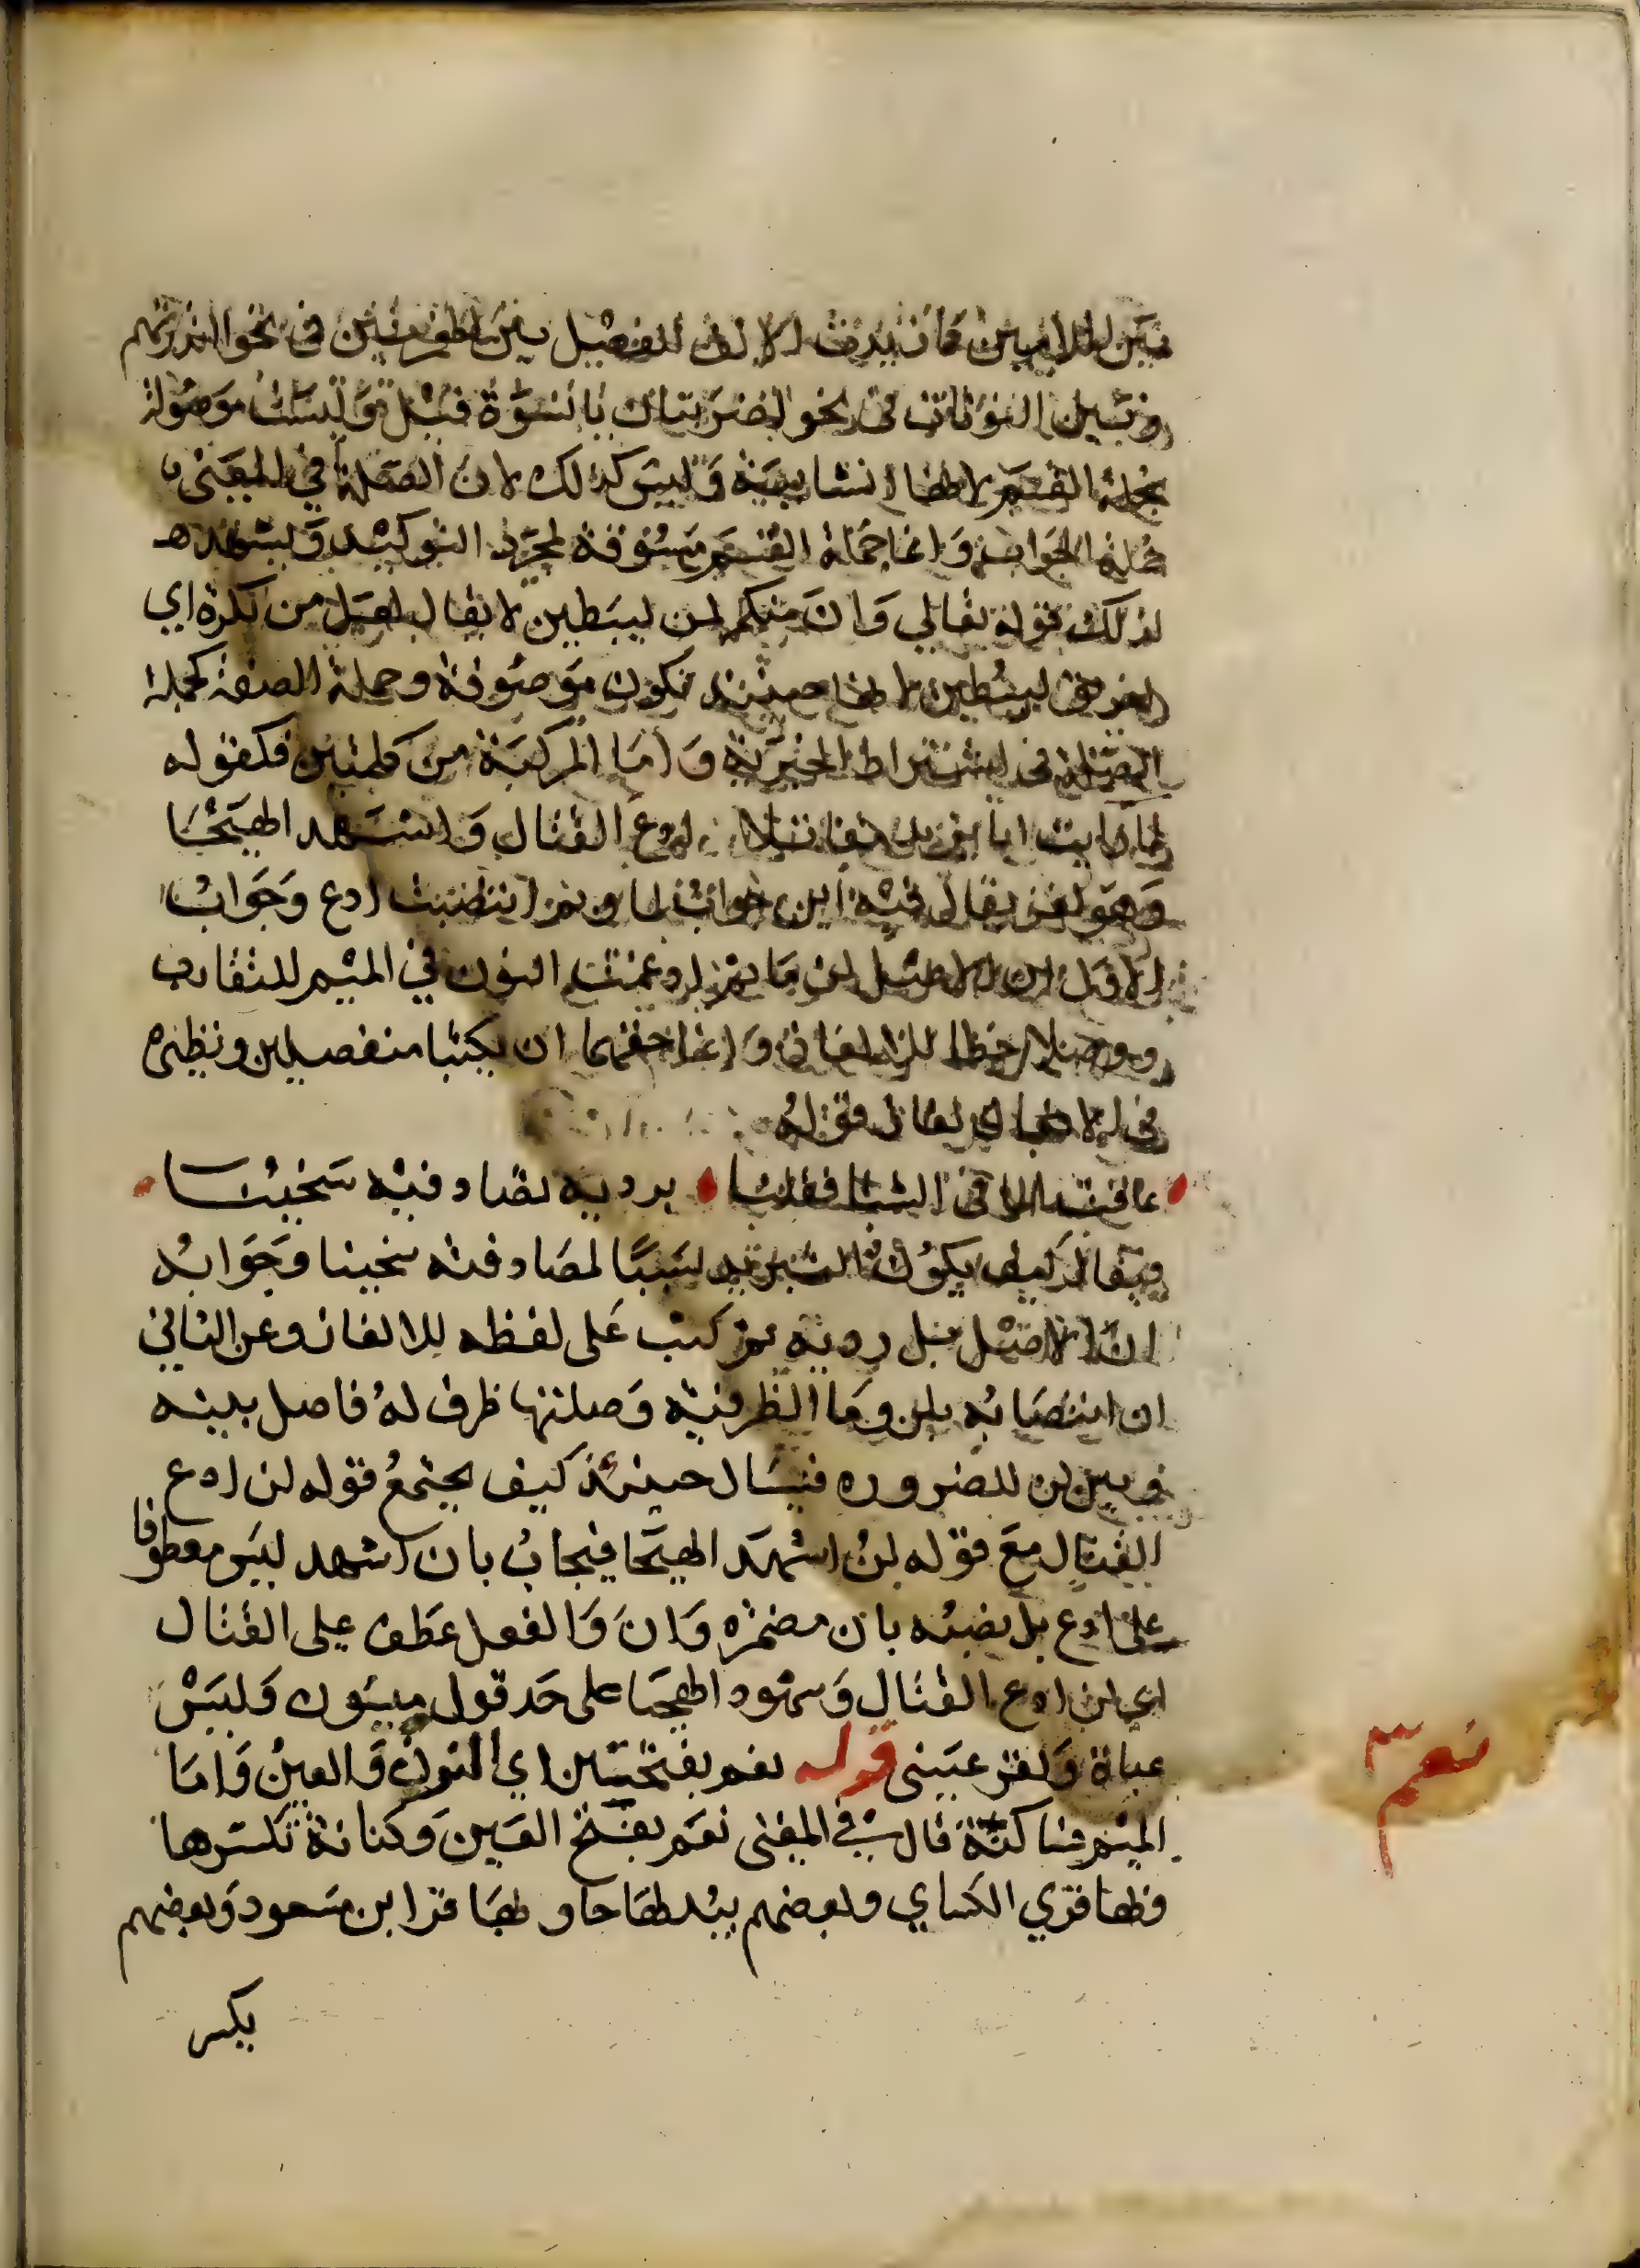 بين اللامين كما زيدت الالف للفصل بين الهمزتين في نحو اانذرتهم
وبين النونات في نحو اضربنان يا نسوة قيل وليست موصولة
بجملة القسم لانها انشايية وليس كذلك لان الصلة في المعنى
جملة الجواب وانما جملة القسم مسوقة لمجرد التوكيد ويشهد
لذلك قوله تعالي وان منكم لمن ليبطين لا يقال لعل من نكرة اي
لفريق ليبطين لانها حينئذ تكون موصوفة وجملة الصفة كجملة
الصلة في اشتراط الخبرية واما المركبة من كلمتين فكقوله
لما رايت ابا يزيد مقاتلا ادع القتال واشهد الهيجا
وهو لغز يقال فيه اين جواب لما وبم انتصبت ادع وجواب
الاول ان الاصل لن ما ثم ادغمت النون في الميم للتقارب
ووصلا خطا للالغاز وانما حقهما ان يكتبا منفصلين ونظيره
في الالغاز قوله
عافت الما في الشتا فقلنا برديه تصادفيه سخينا
ويقال كيف يكون التبريد سببا لمصادفته سخينا وجوابه
ان الاصل بل رديه ثم كتب على لفظه للالغاز وعن الثاني
ان انتصابه بلن وما الظرفية وصلتها ظرف له فاصل بينه
وبين لن للضروره فيسال حينئذ كيف يجتمع قوله لن ادع
القتال مع قوله لن اشهد الهيجا فيجاب بان اشهد ليس معطوفا
على ادع بل نصبه بان مضمره وان والفعل عطف على القتال
اي لن ادع القتال وشهود الهيجا على حد قول ميسون ولبس
عباة وتقر عيني قوله نعم بفتحتين اي النون والعين واما
الميم فساكنة قال في المغني نعم بفتح العين وكنانة تكسرها
وبها قري الكساي وبعضهم يبدلها حا وبها قرا ابن مسعود وبعضهم
بكسر
نعم